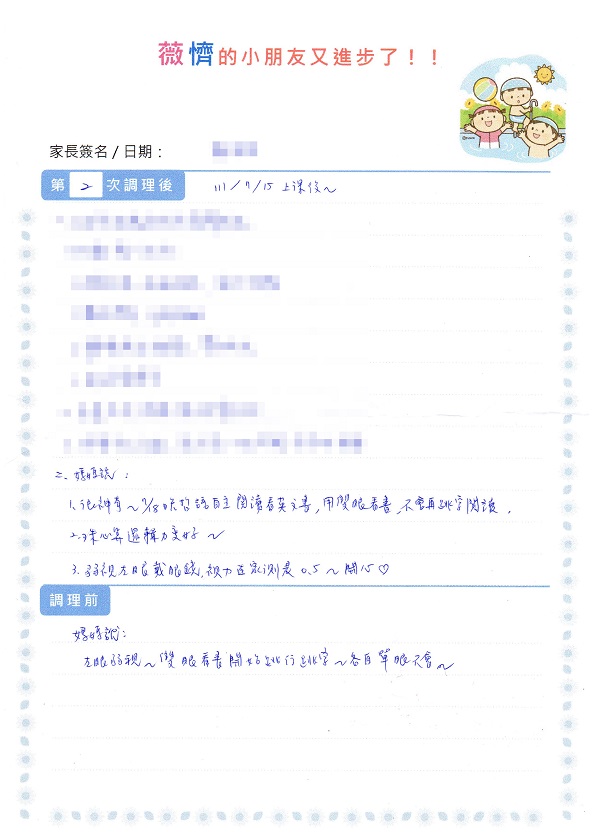 薇憏的小朋友又進步了！！
家長簽名 / 日期：
第 2 次調理後 111/7/15 上課後~
二、媽媽說：
1. 很神奇~7/8 自主閱讀看英文書, 用雙眼看書, 不會再跳字閱讀.
2. 珠心算邏輯力變好~
3. 弱視左眼戴眼鏡, 視力在家測是 0.5~開心♡
調理前
媽媽說：
左眼弱視~雙眼看書開始跳行跳字~各自單眼不會~